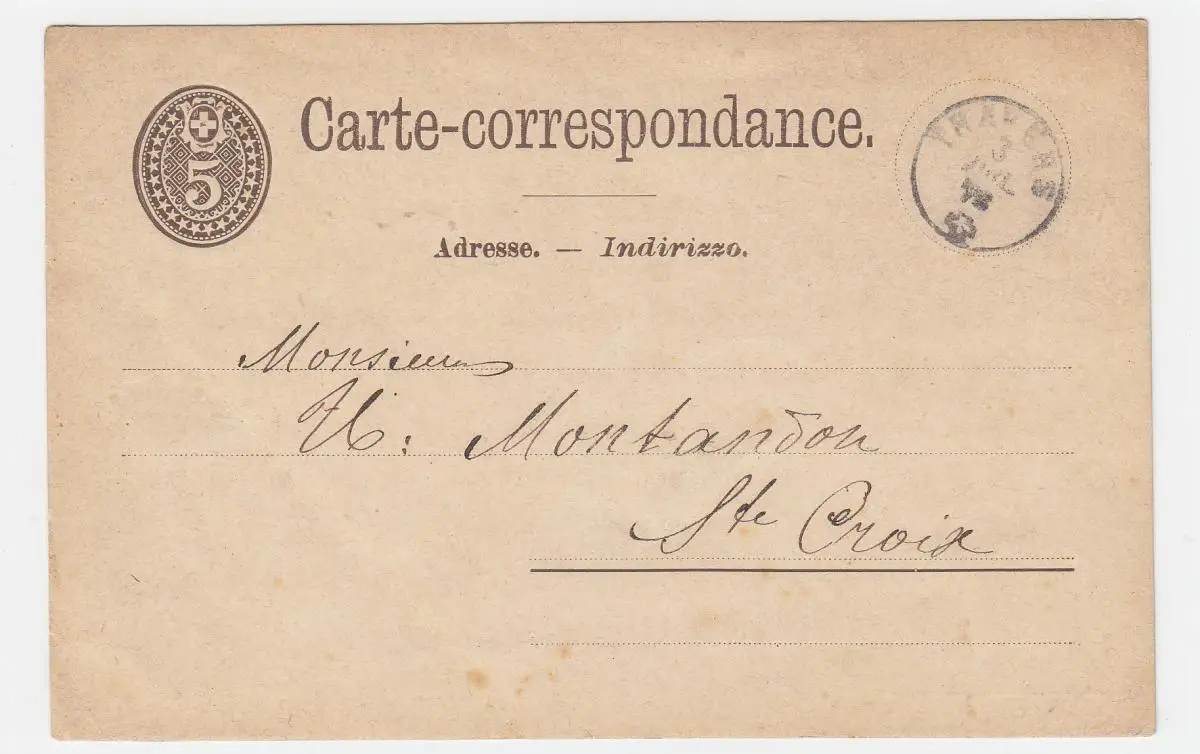 5
Carte-correspondance.
TRAVERS
3
Adresse. — Indirizzo.
Monsieur
Montandon
Ste Croix